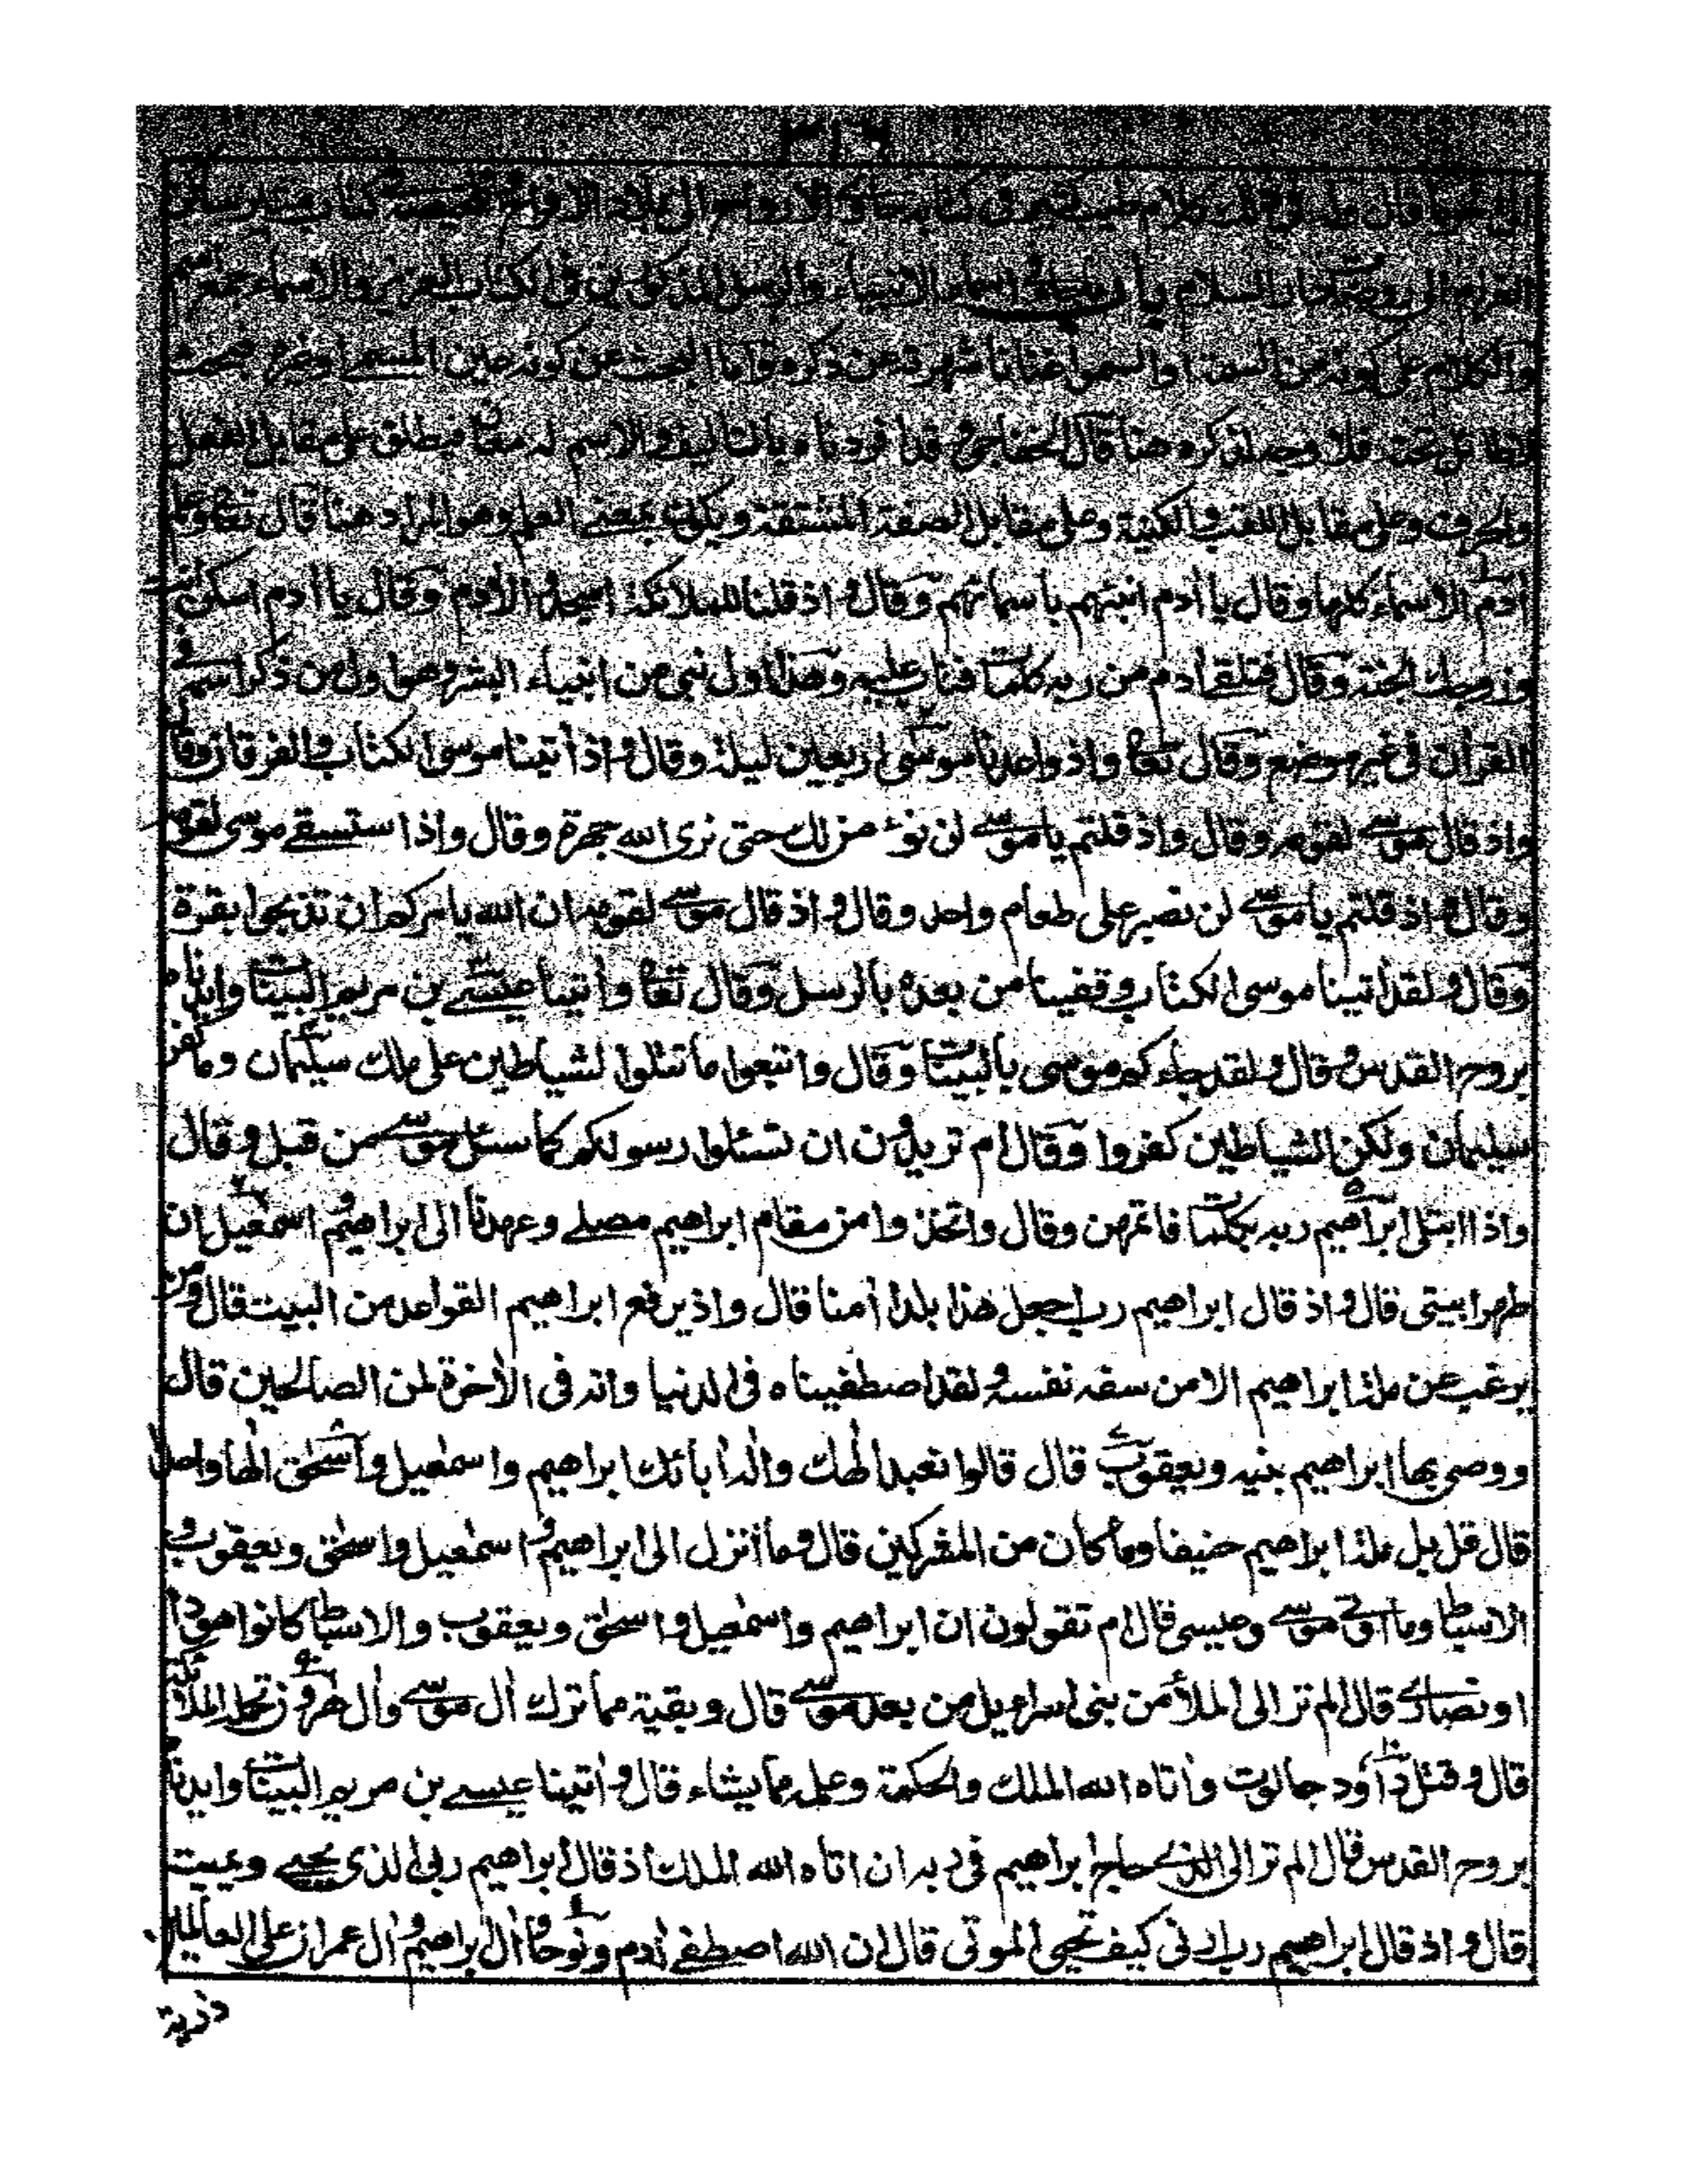 ٣١٦
في ذلك كلام
الغرام الى روضة دار السلام باب في اسماء الانبياء والرسل المذكورين في الكتاب العزيز والاسماء جمع اسم
والكلام على كونه من السمة او السمو اغنانا شهرته عن ذكره واما البحث عن كونه عين المسمى او غيره فبحث
لا طائل تحته فلا وجه لذكره هنا قال الخفاجي وقد افردناه بالتاليف والاسم له معان فيطلق على مقابل الفعل
والحرف وعلى مقابل اللقب والكنية وعلى مقابل الصفة المشتقة ويكون بمعنى العلم وهو المراد هنا قال تعا وعلم
أدم الاسماء كلها وقال يا أدم انبئهم باسمائهم وقال واذ قلنا للملائكة اسجدوا لأدم وقال يا أدم اسكن انت
وزوجك الجنة وقال فتلقى ادم من ربه كلمت فتاب عليه وهذا اول نبي من انبياء البشر وهو اول من ذكر اسمه في
القرأن في غير موضع وقال تعا واذ واعدنا موسى اربعين ليلة وقال واذ أتينا موسى الكتاب والفرقان وقال
واذ قال موسى لقومه وقال واذ قلتم يا موسى لن نؤمن لك حتى نرى الله جهرة وقال واذا ستسقى موسى لقومه
وقال واذ قلتم يا موسى لن نصبر على طعام واحد وقال واذ قال موسى لقومه ان الله يامركم ان تذبحوا بقرة
وقال ولقد أتينا موسى الكتاب وقفينا من بعده بالرسل وقال تعا وأتينا عيسى بن مريم البينات وايدناه
بروح القدس وقال ولقد جاءكم موسى بالبينات وقال واتبعوا ما تتلوا لشياطين على ملك سليمان وما كفر
سليمان ولكن الشياطين كفروا وقال ام تريدون ان تسئلوا رسولكم كما سئل موسى من قبل وقال
واذا ابتلى ابراهيم ربه بكلمات فاتمهن وقال واتخذوا من مقام ابراهيم مصلى وعهدنا الى ابراهيم و اسمعيل ان
طهرا بيتي قال واذ قال ابراهيم رب اجعل هذا بلدا أمنا قال واذ يرفع ابراهيم القواعد من البيت قال ومن
يرغب عن ملة ابراهيم الا من سفه نفسه ولقد اصطفيناه في الدنيا وانه في الأخرة لمن الصالحين قال
ووصى بها ابراهيم بنيه ويعقوب قال قالوا نعبد الهك واله أبائك ابراهيم واسمعيل واسحق الها واحدا
قال قل بل ملة ابراهيم حنيفا وما كان من المشركين قال وما أنزل الى ابراهيم و اسمعيل واسحق ويعقوب و
الاسباط وما اوتي موسى وعيسى قال ام تقولون ان ابراهيم واسمعيل واسحق ويعقوب والاسباط كانوا هودا
او نصارى قال الم تر الى الملأ من بني اسراءيل من بعد موسى قال وبقية مما ترك أل موسى وأل هرون تحمله الملائكة
قال وقتل داود جالوت وأتاه الله الملك والحكمة وعلمه مما يشاء قال وأتينا عيسى بن مريم البينات وايدناه
بروح القدس قال الم تر الى الذي حاج ابراهيم في ربه ان اتاه الله الملك اذ قال ابراهيم ربي الذي يحيي ويميت
قال واذ قال ابراهيم رب ارني كيف تحيي الموتى قال ان الله اصطفى أدم ونوحا وأل ابراهيم وأل عمران على العالمين
ذرية